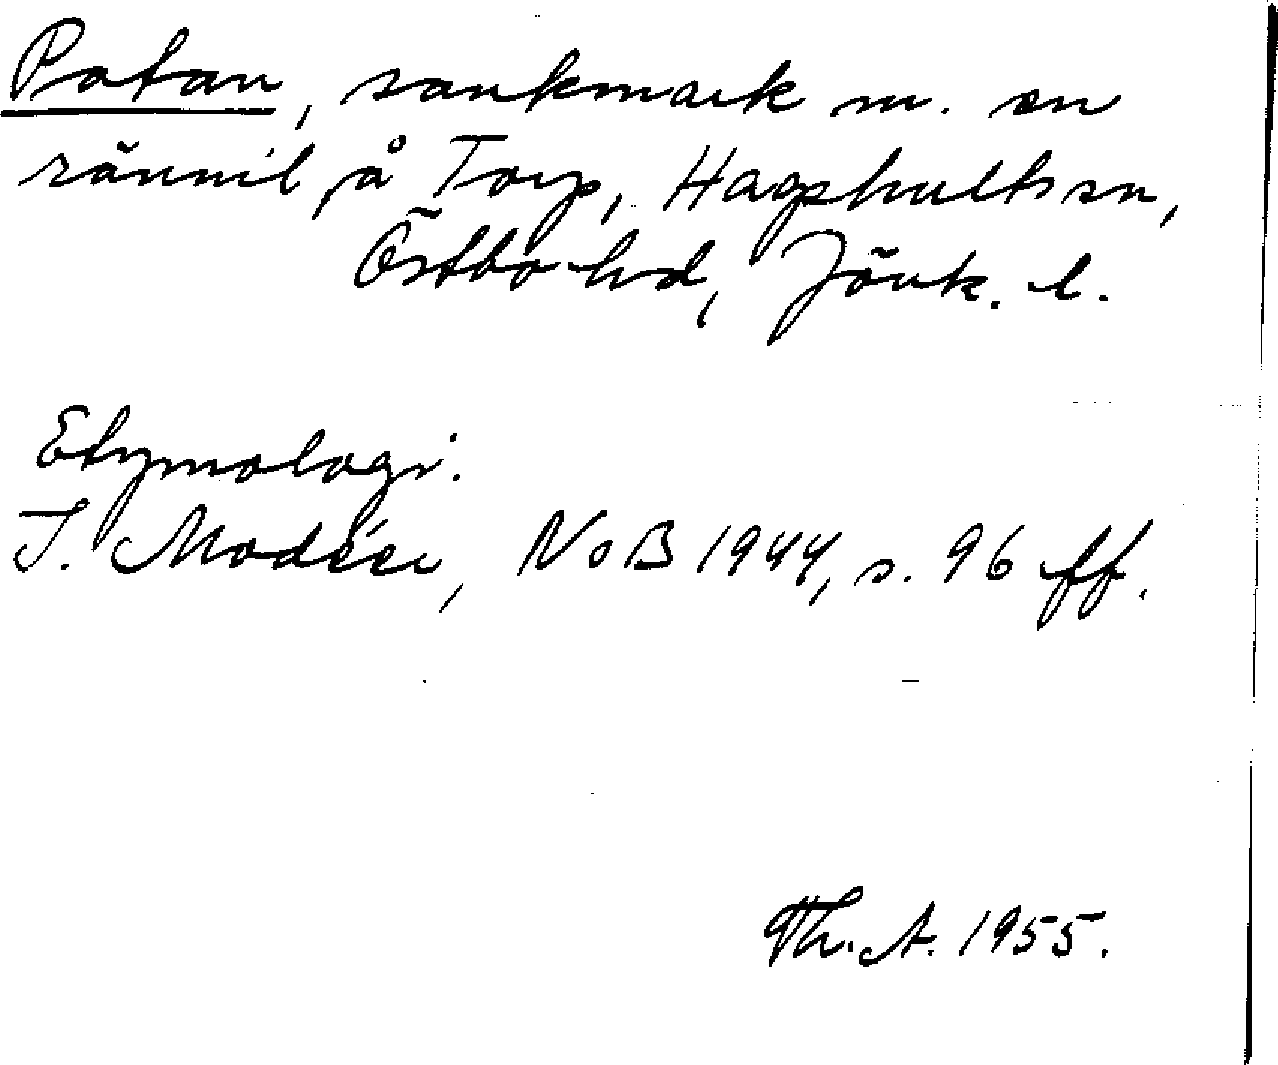 Potan, sankmark m. en
rännil på Torp, Hagshults sn,
Östbo hd, Jönk. l.
Etymologi.
I. Modéer, NoB 1944, s. 96 ff.
Th. A. 1955.